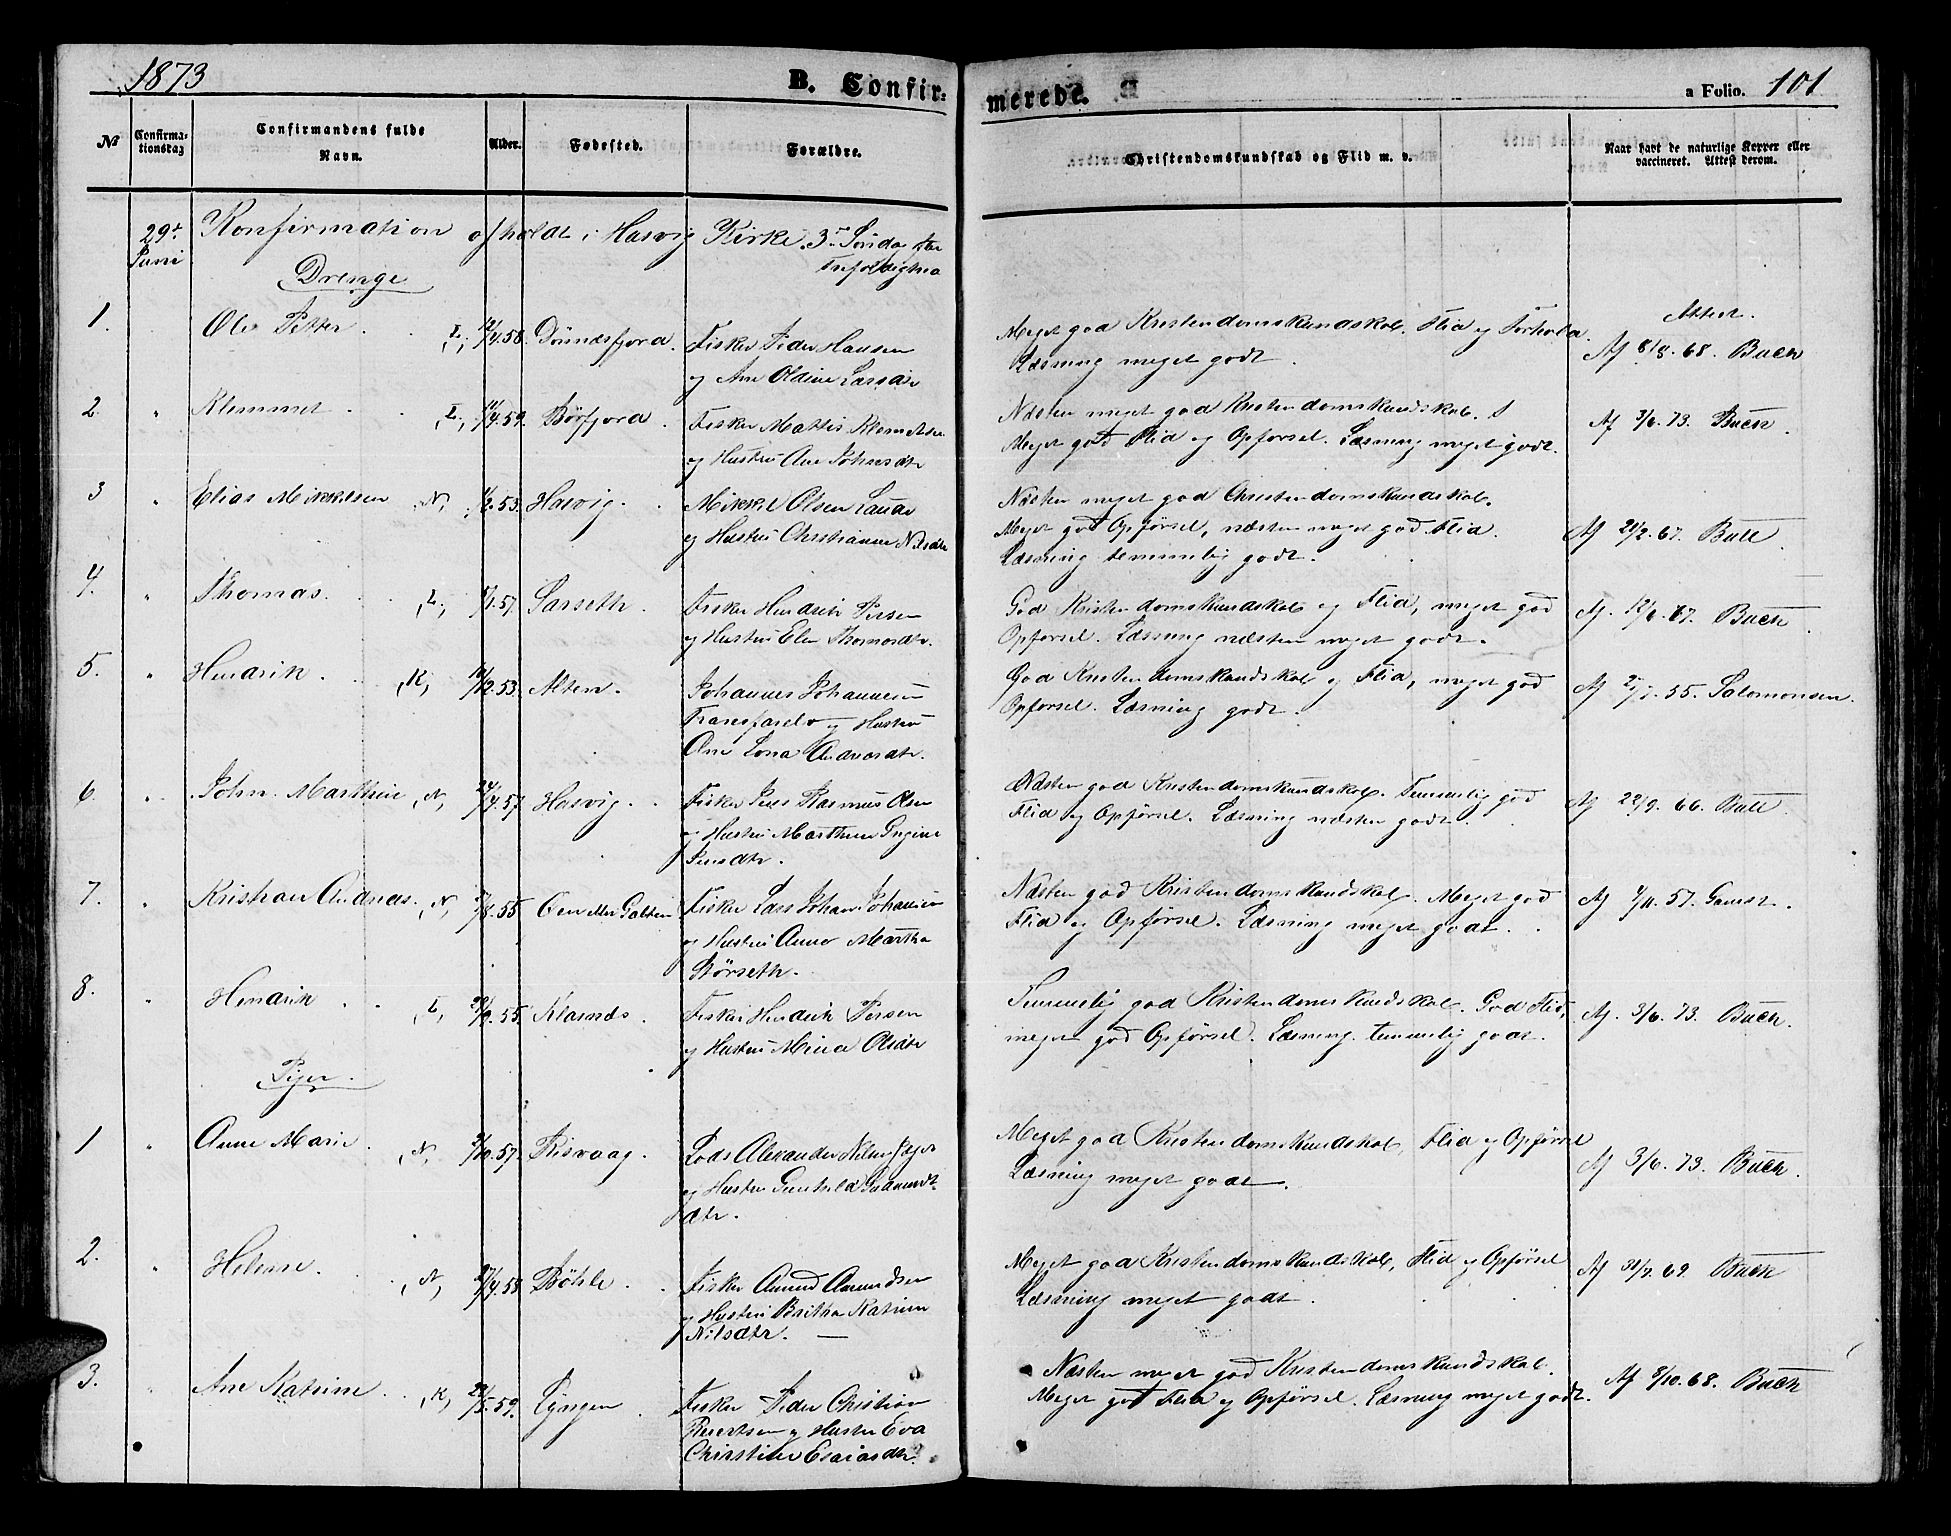 1873
B. Confir-
merede.
a Folio. 101
№
Confirma-
tionsdag
Confirmandens fulde
Navn.
Alder.
Fødested.
Forældre.
Christendomskundskab og Flid m. v.
Naar havt de naturlige Kopper eller
vaccineret. Attest derom.
29de Juni Konfirmation afholdt i Hasvig Kirke 3die Søndag efter
Trefoldighed
Drenge
1. Ole Petter . . L, 4.58. Dønnesfjord. Fisker Peder Hansen
og Ane Oldine Larsdtr
Meget god Kristendomskundskab. Flid og Forhold.
Læsning meget godt.
Attest.
Af 8/8. 68. Buch
2. " Klemmet . . L, 4.59. Børfjord . Fisker Mattis Klemetsen
og Hustru Ane Johnsdtr
Næsten meget god Kristendomskundskab.
Meget god Flid og Opførsel. Læsning meget godt.
Af 3/6. 73. Buch.
3 " Elias Mikkelsen N, 2.53. Hasvig. Mikkel Olsen
og Hustru Christianne Nilsdtr
Næsten meget god Christendomskundskab.
Meget god Opførsel, næsten meget god Flid.
Læsning temmelig godt.
Af 2. 67. Bull
4. " Thomas. . . L, 1.57. Sarseth. Fisker Hendrik Persen
og Hustru Elen Thomasdtr.
God Kristendomskundskab og Flid, meget god
Opførsel. Læsning næsten meget godt.
Af 12/6. 67. Buch.
5. " Hendrik. . . K, 12.53. Alten. Johannes Johannesen
og Hustru
Ane Lona Andersdtr.
God Kristendomskundskab og Flid, meget god
Opførsel. Læsning godt.
Af 55. Salomonsen.
6. " John Marthin N, 24/4.57. Hasvig. . Fisker Jens Rasmus Olsen
og Hustru Marthine
Jensdtr.
Næsten god Kristendomskundskab. Temmelig god
Flid og Opførsel. Læsning næsten godt.
Af 22/9. 66. Bull
7. " Kristian Andreas. N, 8.55. Øen eller Galten Fisker Lars Johan Johansen
og Hustru Anne Martha
Størseth.
Næsten god Kristendomskundskab. Meget god
Flid og Opførsel. Læsning meget godt.
Af 11. 57.
8. " Hendrik . . L, 9.55. Klarnds. Fisker Hendrik Persen
og Hustru Olsdtr
Temmelig god Kristendomskundskab. God Flid,
meget god Opførsel. Læsning temmelig godt.
Af. 3/6. 73. Buch.
Piger.
1 " Anne Marie. N, 10.57. Risvaag. Lods Alexander Nilsen
og Hustru Gunhild
dtr.
Meget god Kristendomskundskab, Flid og Opførsel
Læsning meget godt.
Af 3/6. 73. Buch.
2. " Helene. . . N, 4.58 Bøhle. Fisker Amund Amundsen
og Hustru Britha Katrine
Nilsdtr.
Meget god Kristendomskundskab, Flid og Opførsel
Læsning meget godt.
Af 69. Buch
3. " Ane Katrine. . K, 5.59. Lyngen . Fisker Peder Christian
og Hustru Eva
Christine Esaiasdtr.
Næsten meget god Kristendomskundskab.
Meget god Flid og Opførsel. Læsning meget godt.
Af 8/10. 68. Buch